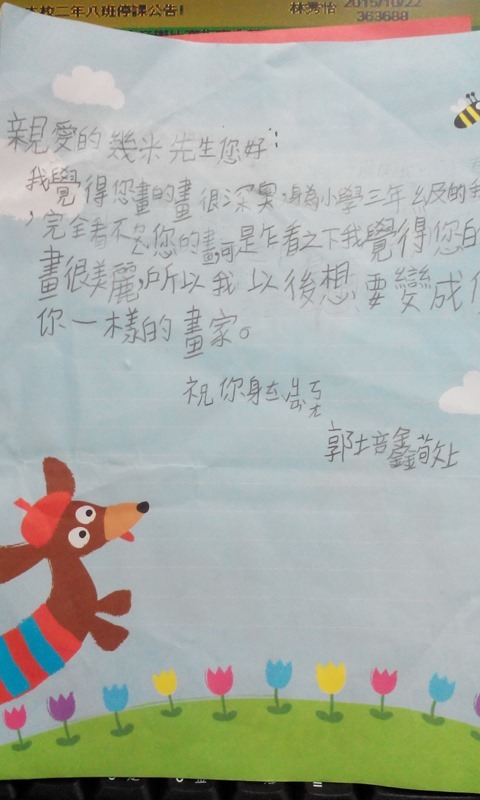 本校二年八班停課公告!
林秀怡 2015/10/22
363688
親愛的幾米先生您好:
我覺得您畫的畫很深奧,身為小學三年級的我
,完全看不ㄉㄨㄥˇ您的畫,可是乍看之下我覺得您的
畫很美麗,所以我以後想要變成像
你一樣的畫家。
祝你身
郭培鑫敬上